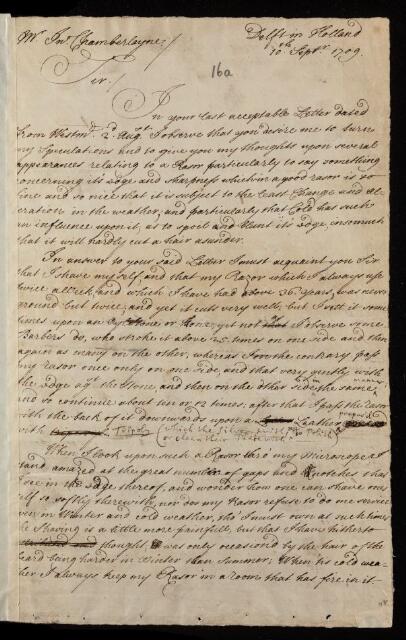 Mr. Jno. Chamberlayne /
Delft in Holland
10th Septr. 1709.
Sir /
16a
In your last acceptable Letter dated
from Westmr. 2d. Augst. I observe that you desire me to turn
my Speculations and to give you my thoughts upon several
appearances relating to a Rasor particularly to say something
concerning its Edge and sharpness which in a good rasor is so
fine and so nice that it is subject to the least Change and Al-
eration in the weather, and particularly that Cold has such
an influence upon it, as to spoil and blunt its Edge, insomuch
that it will hardly cut a hair asunder.
In answer to your said Letter I must acquaint you Sir
that I shave my self and that my Razor which I always use
twice a Week, and which I have had above 36 years, was never
ground but twice, and yet it cuts very well, but I sett it some
times upon an Stone or Hone, yet not I observe some
Barbers do, who stroke it above 25 times on one side and then
again as many on the other, whereas I on the contrary pass
my rasor once only on one side, and that very gently with
the Edge agst. the Stone, and then on the other side in the same manner,
and so continue about ten or 12 times, after that I pass the rasor
with the back of it downwards upon a Leather prepared
with Tripoly (which the Silver smiths use to polish
or clean their Plate with.)
When I look upon such a Rasor thro' my Microscope I
stand amazed at the great number of gaps and notches that
I see in the Edge thereof, and wonder how one can shave ones
self so softly therewith, nor does my Rasor refuse to do me service
even in Winter and cold weather, tho' I must own at such times
the Shaving is a little more painfull, but that I have hitherto
thought, was only occasion'd by the hair of the
beard being harder in Winter than Summer; When its cold wea-
ther I always keep my Rasor in a room that has fire in it